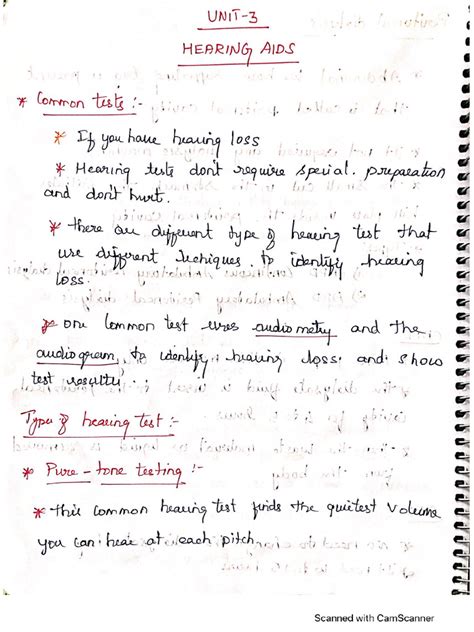 UNIT-3
HEARING AIDS
* Common tests :-
* If you have hearing loss
* Hearing tests don't require special preparation
and don't hurt.
* there are different type of hearing test that
use different techniques to identify hearing
loss.
* one common test uses audiometry and the
audiogram to identify hearing loss and show
test results.
Types of hearing test :-
* Pure-tone testing :-
* this common hearing test finds the quietest volume
you can hear at each pitch.
Scanned with CamScanner